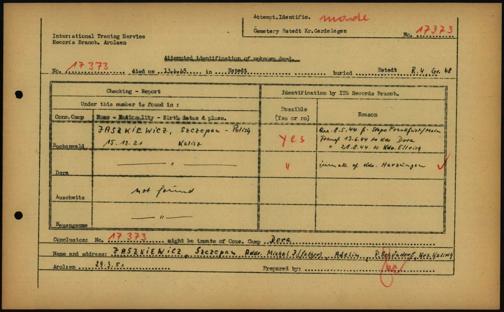 Attempt.Identific. made
International Tracing Service
Records Branch, Arolsen
Cemetery Estedt Kr.Gardelegen
No. 17373
Attempted identification of unknown dead.
No. 17373 died on 13.4.45 in Estedt buried Estedt R.4, Gr. 48
Checking - Report
Identification by ITS Records Branch.
Under this number is found in :
Possible
(Yes or no)
Reason
Conc.Camp
Name - Nationality - Birth dates & place.
ZASZKIEWICZ, Szczepan - Polish
15.12.21 Kalisz
Buchenwald
yes
8.5.44
Transf 13.6.44 to Kdo Dora
" 21.8.44 to Kdo. Ellrich
Dora
— " —
"
inmate of Kdo. Harzungen
Auschwitz
not found
Neuengamme
— " —
Conclusion: No. 17373 might be inmate of Conc. Camp Dora
Name and address: ZASZKIEWICZ, Szczepan Addr. Michal Z. (father),
Arolsen 29.3.50 Prepared by: